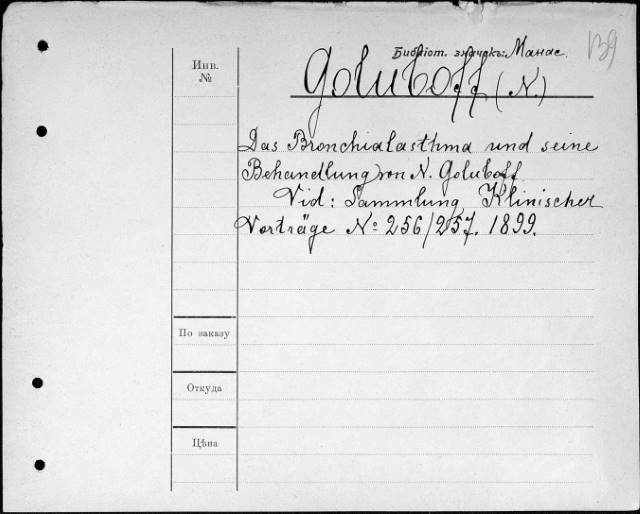 Библіот. значекъ: Манас.
139
Инв.
№
Goluboff (N.)
Das Bronchialasthma und seine
Behandlung von N. Goluboff
Vid: Sammlung Klinischer
Vorträge No 256/257. 1899.
По заказу
Откуда
Цѣна